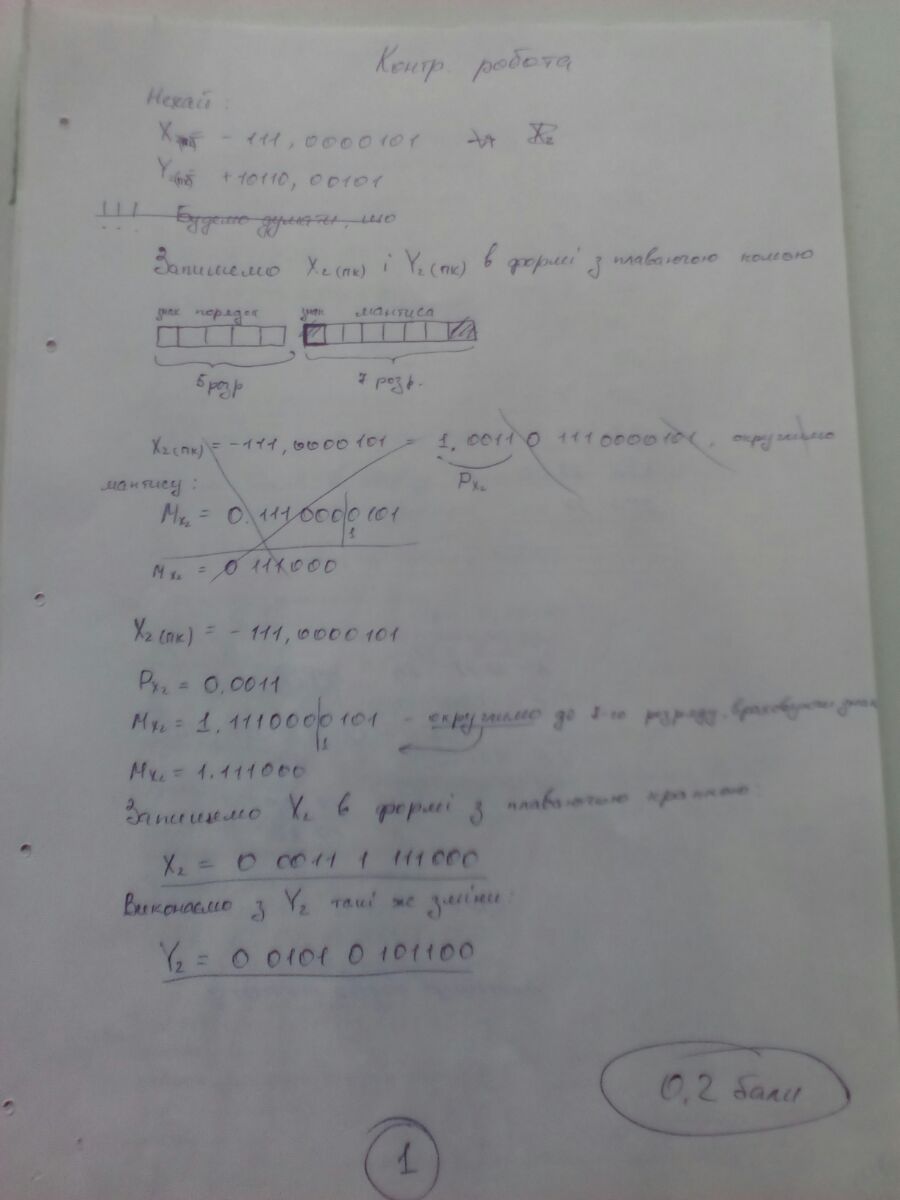 Контр. робота
Нехай:
X - 111,0000101
Y +10110,00101
!!! Будемо думати, що
Запишемо X2(пк) і Y2(пк) в формі з плаваючою комою
знак порядок знак мантиса
5 розр 7 розр.
X2(пк) = -111,0000101 = 1,0011 0 1110000101, округлимо
Px2
мантису:
Mx2 = 0.1110000101
1
Mx2 = 0 111000
X2(пк) = - 111,0000101
Px2 = 0,0011
Mx2 = 1.1110000101 - округлимо до 7-го розряду, враховуючи знак
1
Mx2 = 1.111000
Запишемо X2 в формі з плаваючою крапкою:
X2 = 0 0011 1 111000
Виконаємо з Y2 такі же зміни:
Y2 = 0 0101 0 101100
0,2 бали
1